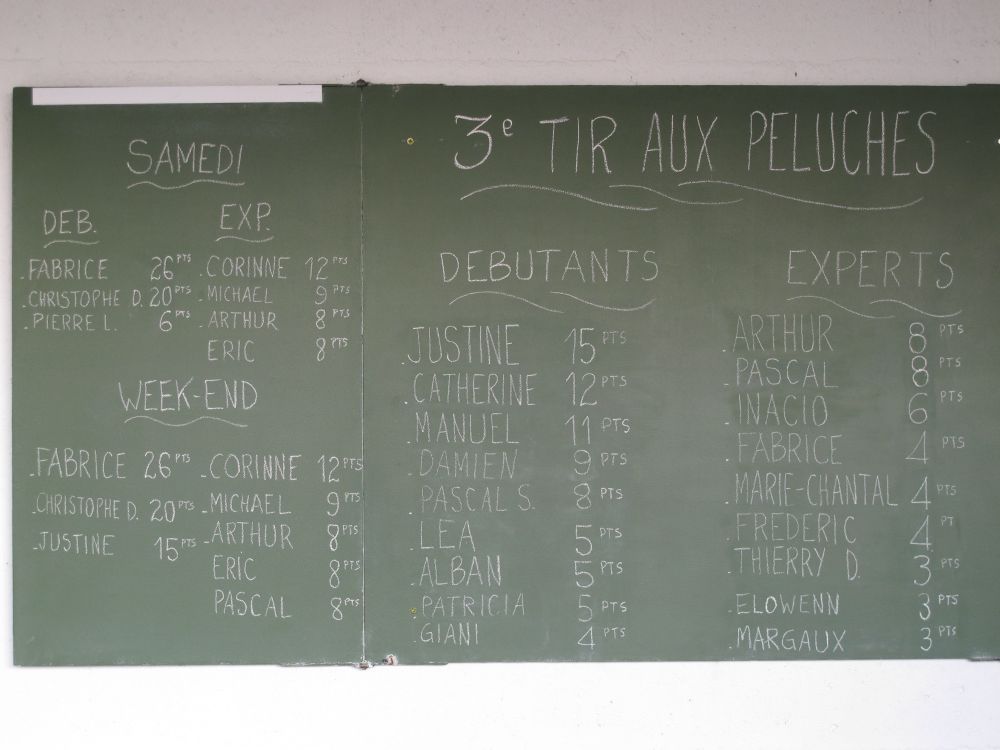 SAMEDI
DEB.
.FABRICE 26 PTS
.CHRISTOPHE D. 20 PTS
.PIERRE L. 6 PTS
EXP.
.CORINNE 12 PTS
.MICHAEL 9 PTS
.ARTHUR 8 PTS
ERIC 8 PTS
WEEK-END
.FABRICE 26 PTS
.CHRISTOPHE D. 20 PTS
.JUSTINE 15 PTS
.CORINNE 12 PTS
.MICHAEL 9 PTS
.ARTHUR 8 PTS
ERIC 8 PTS
PASCAL 8 PTS
3e TIR AUX PELUCHES
DEBUTANTS
.JUSTINE 15 PTS
.CATHERINE 12 PTS
.MANUEL 11 PTS
.DAMIEN 9 PTS
.PASCAL S. 8 PTS
.LEA 5 PTS
.ALBAN 5 PTS
.PATRICIA 5 PTS
.GIANI 4 PTS
EXPERTS
.ARTHUR 8 PTS
.PASCAL 8 PTS
.INACIO 6 PTS
.FABRICE 4 PTS
.MARIE-CHANTAL 4 PTS
.FREDERIC 4 PT
.THIERRY D. 3 PTS
.ELOWENN 3 PTS
.MARGAUX 3 PTS